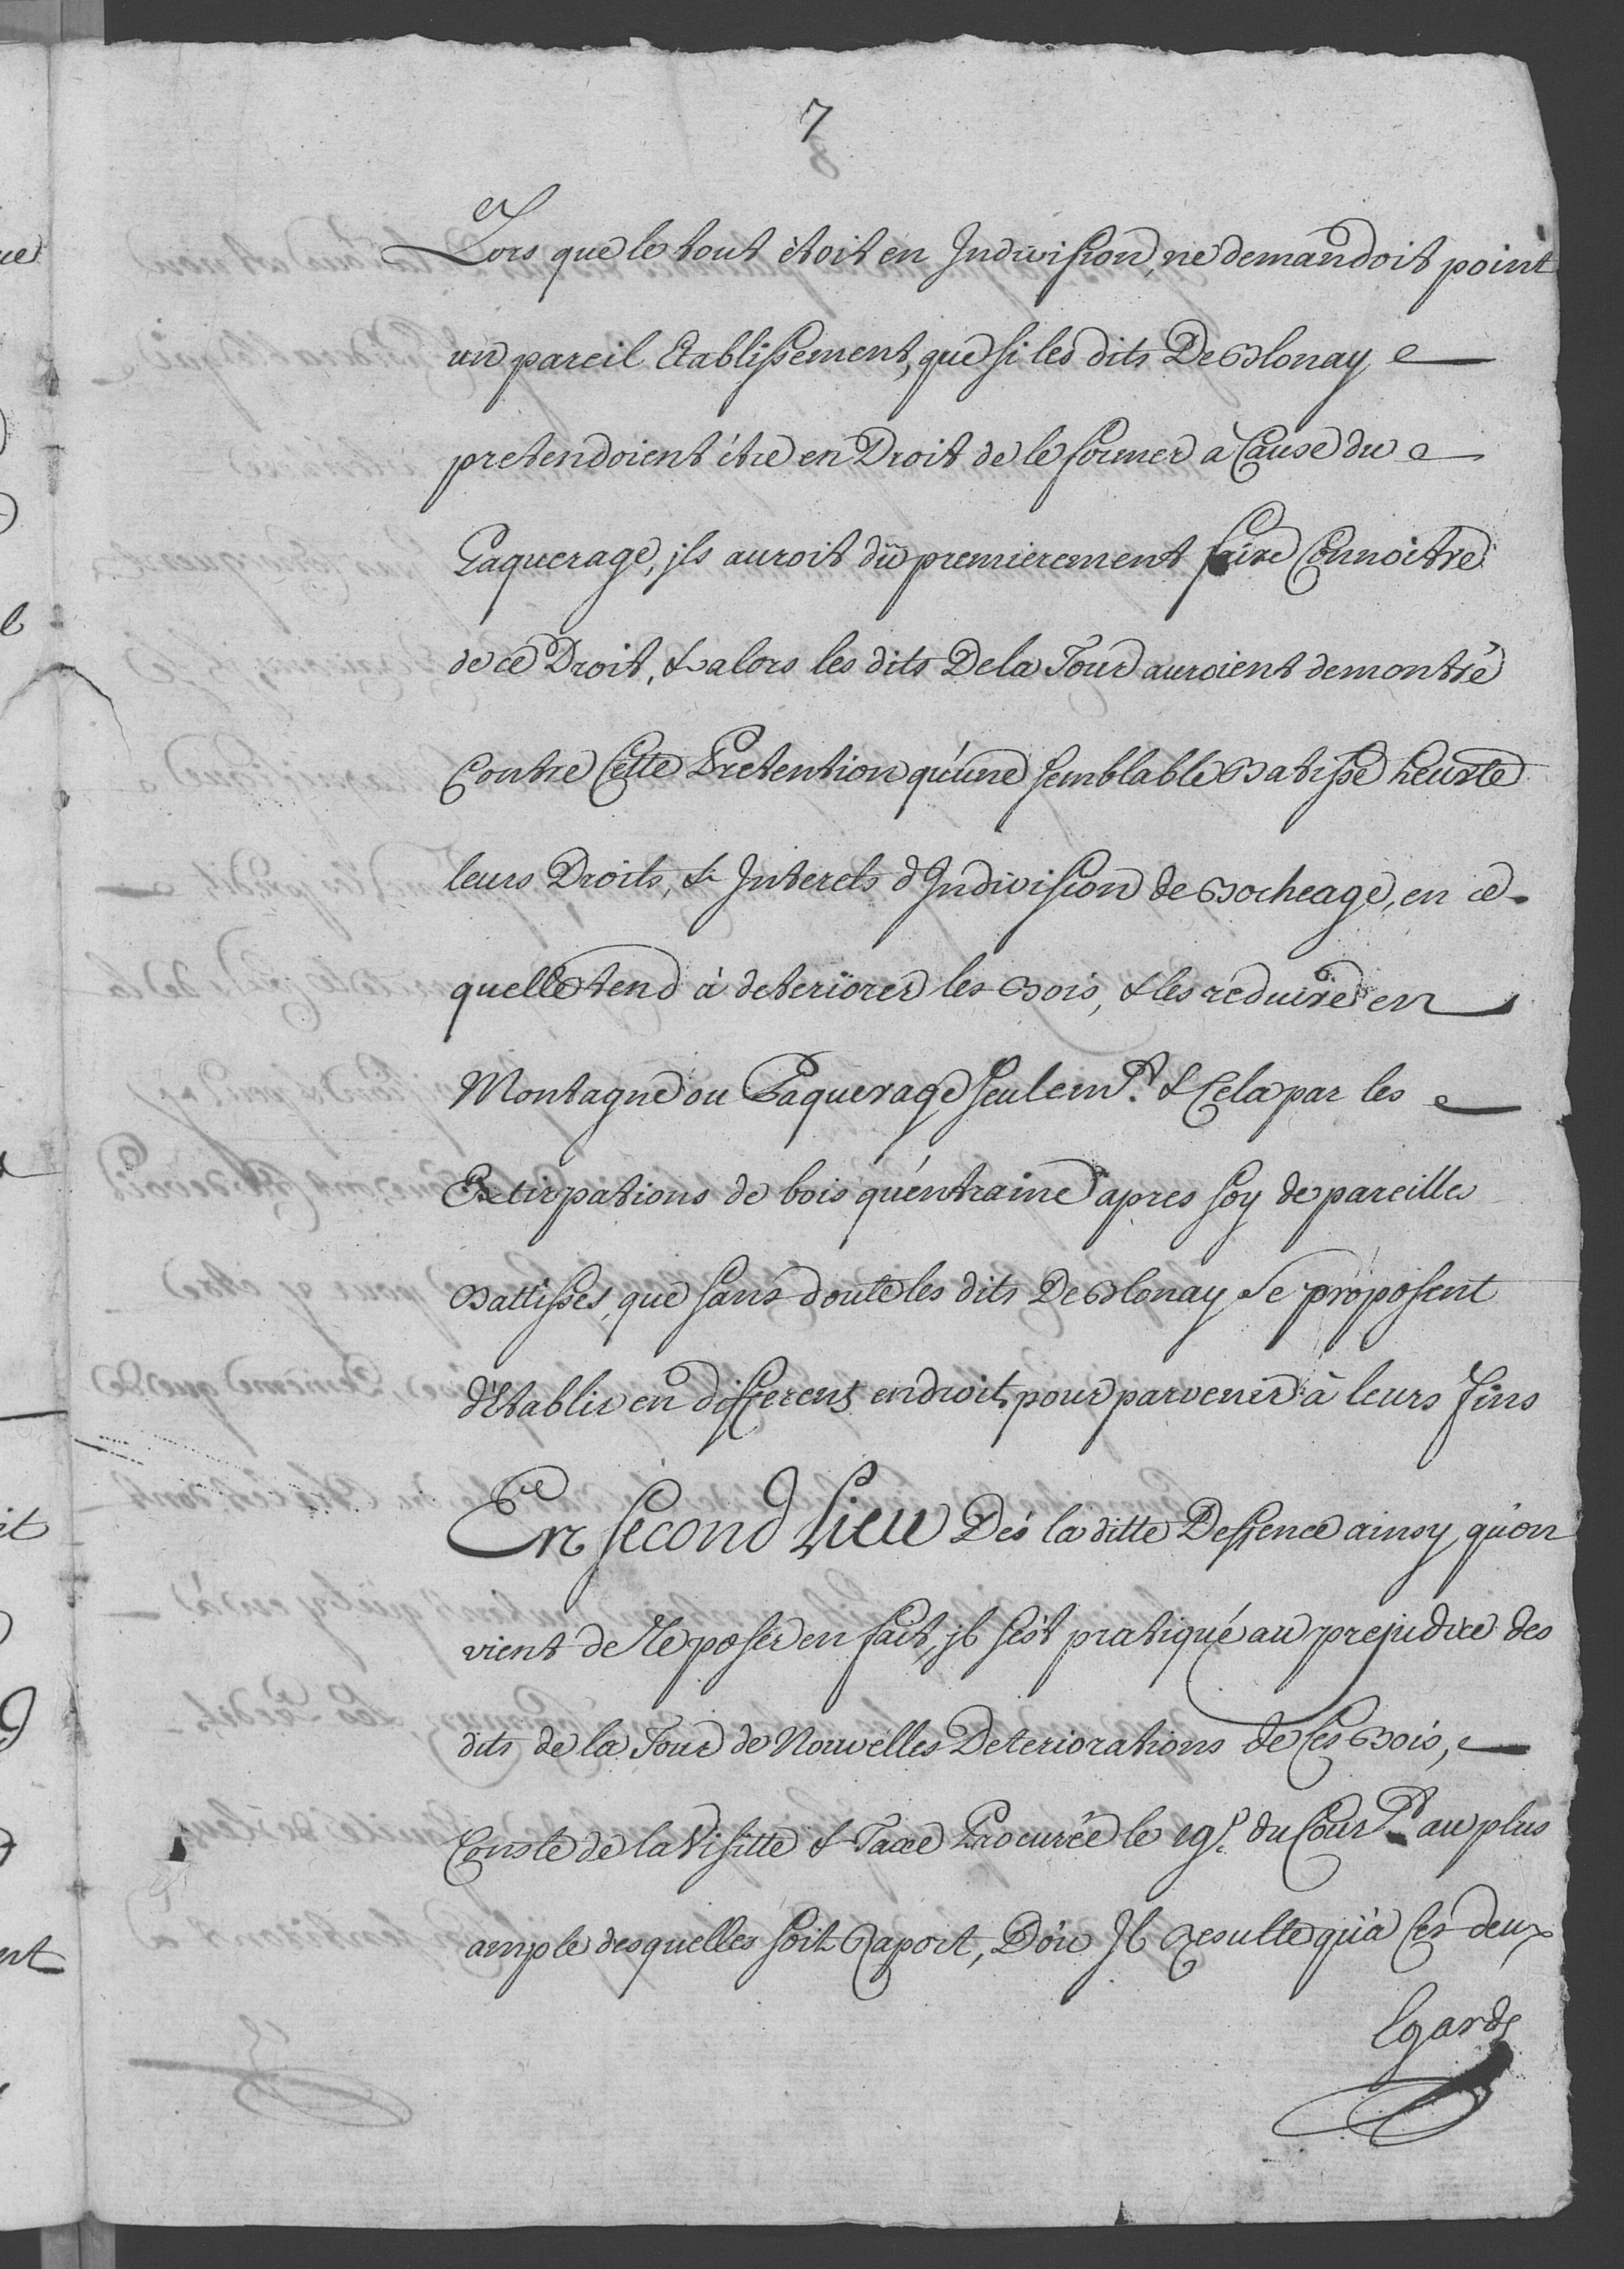 7
Lors que le tout êtoit en Indivision, ne demandoit point
un pareil Etablissement, que si les dits De Blonay
pretendoient être en Droit de le former à Cause du
Paquerage, jls auroit dû premierement faire Connoitre
de ce Droit, & alors les dits De la Tour auroient demontré
Contre Cette Pretention qu'une semblable Batisse heurte
leurs Droits, & Interets d'Indivision de Bocheage, en ce
quelle tend à deteriorer les Bois, & les reduire en
Montagne ou Paquerage seulemt. & Cela par les
Extirpations de bois qu'entraine apres soy de pareilles
Battisses, que sans doute les dits De Blonay se proposent
d'Etablir en differens endroits pour parvenir à leurs fins
En second Lieu Dés la ditte Deffence ainsy qu'on
vient de le poser en fait, jl s'est pratiqué au prejudice des
dits de la Tour de Nouvelles Deteriorations de Ces Bois,
Conste de la Visitte & Taxe Procurée le 19e. du Court. au plus
ample desquelles soit Raport, D'ou Il Resulte qu'à Ces deux
Egards